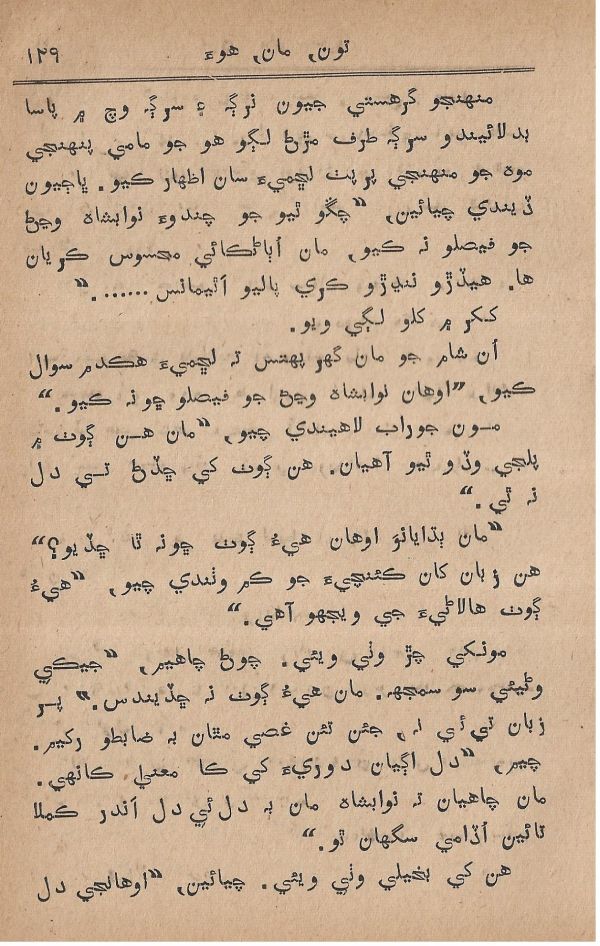 تون، مان، هوءَ ١٣٩
منهنجو گرهستي جيون نرڳ ۽ سرڳ وچ ۾ پاسا
بدلائيندو سرڳ طرف مڙڻ لڳو هو جو مامي پنهنجي
موهه جو منهنجي پرپٺ لڇميءَ سان اظهار ڪيو. ڀاڄيون
ڏيندي چيائين، “چڱو ٿيو جو چندوءَ نوابشاهه وڃڻ
جو فيصلو نه ڪيو، مان اُڀاڻڪائي محسوس ڪريان
ها. هيڏڙو ننڍڙو ڪري پاليو اٿيمانس......”
ڪڪر ۾ ڪلو لڳي ويو.
اُن شام جو مان گهر پهتس ته لڇميءَ هڪدم سوال
ڪيو، “اوهان نوابشاهه وڃڻ جو فيصلو ڇو نه ڪيو.”
مون جوراب لاهيندي چيو، “مان هن ڳوٺ ۾
پلجي وڏو ٿيو آهيان. هن ڳوٺ کي ڇڏڻ تي دل
نه ٿي.”
“مان ٻڌايانوَ اوهان هيءُ ڳوٺ ڇو نه ٿا ڇڏيو؟”
هن زبان کان ڪئنچيءَ جو ڪم وٺندي چيو، “هيءُ
ڳوٺ هالاڻيءَ جي ويجهو آهي.”
مونکي چڙ وٺي ويئي. چوڻ چاهيم، “جيڪي
وڻيئي سو سمجهه. مان هيءُ ڳوٺ نه ڇڏيندس.” پر
زبان تي ئي نه، جئن تئن غصي مٿان به ضابطو رکيم.
چيم، “دل اڳيان دوريءَ کي ڪا معنيٰ ڪانهي.
مان چاهيان ته نوابشاهه مان به دل ئي دل اَندر ڪملا
تائين اُڏامي سگهان ٿو.”
هن کي بخيلي وٺي ويئي. چيائين، “اوهانجي دل